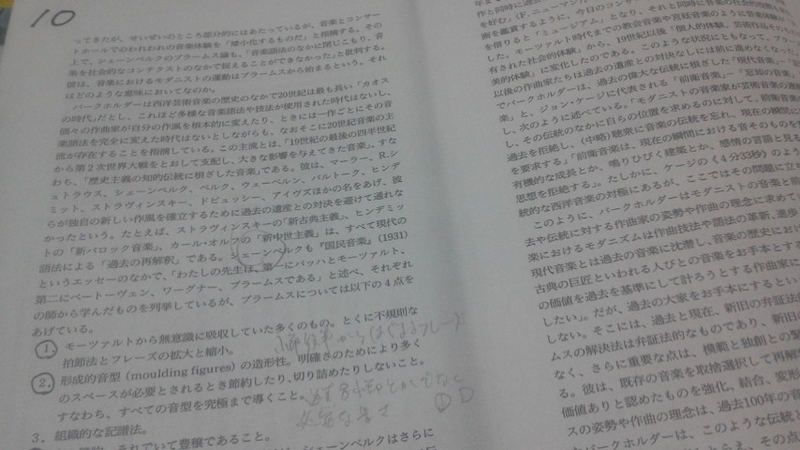 10
ってきたが、せいぜいのところ部分的にはあたっているが、音楽とコンサー
トホールでのわれわれの音楽体験を「矮小化するものだ」と指摘する。その
上で、シェーンベルクのブラームス論も、「音楽語法のなかに閉じこもり、音
楽を社会的なコンテクストのなかで捉えることができなかった」と批判する。
彼は、音楽におけるモダニストの運動はブラームスから始まるという。それ
はどのような意味においてなのか。
パークホルダーは西洋芸術音楽の歴史のなかで20世紀は最も長い「カオス
の時代」だとし、これほど多様な音楽語法や技法が使用された時代はないし、
個々の作曲家が自分の作風を根本的に変えたり、ときには一作ごとにその音
楽語法を完全に変えた時代はないとしながらも、なおそこに20世紀音楽の主
流が存在することを指摘している。この主流とは、「19世紀の最後の四半世紀
から第2次世界大戦をとおして支配し、大きな影響を与えてきた音楽」、すな
わち、「歴史主義の知的伝統に根ざした音楽である」。彼は、マーラー、R.シ
ュトラウス、シェーンベルク、ベルク、ウェーベルン、バルトーク、ヒンデ
ミット、ストラヴィンスキー、ドビュッシー、アイヴズほかの名をあげ、彼
らが独自の新しい作風を確立するために過去の遺産との対決を避けて通れな
かったという。たとえば、ストラヴィンスキーの「新古典主義」、ヒンデミッ
トの「新バロック音楽」、カール・オルフの「新中世主義」は、すべて現代の
語法による「過去の再解釈」である。シェーンベルクも『国民音楽』(1931)
というエッセーのなかで、「わたしの先生は、第一にバッハとモーツァルト、
第二にベートーヴェン、ワーグナー、ブラームスである」と述べ、それぞれ
の師から学んだものを列挙しているが、ブラームスについては以下の4点を
あげている。
1. モーツァルトから無意識に吸収していた多くのもの。とくに不規則な
拍節法とフレーズの拡大と縮小。
小節線
からはみ出るフレーズ
2. 形成的音型（moulding figures）の造形性。明確さのためにより多く
のスペースが必要とされるとき節約したり、切り詰めたりしないこと。
すなわち、すべての音型を究極まで導くこと。
8小節とかでなく
必要な長さ
3. 組織的な記譜法。
それでいて豊穣であること。
シェーンベルクはさらに
作と同時に
を好む」(F.ニューマン
画を鑑賞するように、今日のコンサー
を借りると「ミュージアム」となり、それと同時に音楽の社会的
した。モーツァルト時代までの教会音楽や宮廷音楽のように音楽体験
有された社会的体験」から、19世紀以後「個人的体験、芸術作品その
美的体験」に変化したのである。このような状況にともなって、
以後の作曲家たちは過去の遺産との対決なしには前に進めなくなった。
でパークホルダーは、過去の偉大な伝統に根ざした「現代音楽」と
楽」と、ジョン・ケージに代表される「前衛音楽」、「忘却の音楽」
し、次のように述べている。「モダニストの音楽家が芸術音楽の連続
し、その伝統のなかに自らの位置を求めるのに対して、前衛音楽
過去を拒絶し、(中略)聴衆に音楽の伝統を忘れ、現在の瞬間に
を要求する」。「前衛音楽は、現在の瞬間における音そのものを
有機的な成長とか、鳴りひびく建築とか、感情の言語と
思想を拒絶する」。たしかに、ケージの《4分33秒》のよう
統的な西洋音楽の対極にあるが、ここではその問題に立ち
このように、パークホルダーはモダニストの音楽と前
去や伝統に対する作曲家の姿勢や作曲の理念に求めて
楽におけるモダニズムは作曲技法や語法の革新、進歩
現代音楽とは過去の音楽に沈潜し、音楽の歴史におけ
古典の巨匠といわれる人びとの音楽をお手本とする
の価値を過去を基準にして計ろうとする作曲家に
したい」。だが、過去の大家をお手本にするといっ
しない。そこには、過去と現在、新旧の弁証法的
ムスの解決法は弁証法的なものであり、新旧の
なく、さらに重要な点は、模範と独創との
る。彼は、既存の音楽を取捨選択して再解
価値ありと認めたものを強化、結合、変形
の作曲の理念は、過去100年の音
パークホルダーは、このような伝統
とらえ、その点